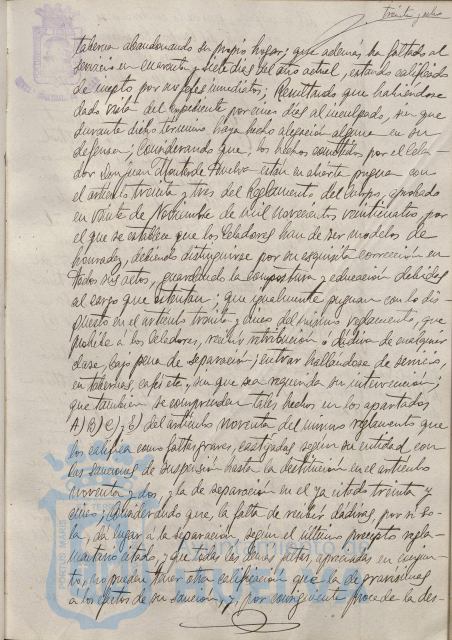 treinta y ocho
taberna abandonando su propio hogar; que además ha faltado al
servicio en cuarenta y siete días del año actual, estando calificado
de inepto por sus jefes inmediatos; Resultando que habiéndose
dado vista del expediente por cinco días al inculpado, sin que
durante dicho término haya hecho alegación alguna en su
defensa; Considerando que, los hechos cometidos por el Cela-
dor Don Juan Monterde Huelva están en abierta pugna con
el artículo treinta y tres del Reglamento del Cuerpo, aprobado
en veinte de Noviembre de mil novecientos veinticuatro, por
el que se establece que los Celadores han de ser modelos de
honradez, debiendo distinguirse por su esquisita corrección en
todos sus actos, guardando la compostura y educación debidas
al cargo que ostentan; que igualmente pugnan con lo dis-
puesto en el artículo treinta y cinco del mismo reglamento, que
prohibe a los Celadores, recibir retribución o dádiva de cualquier
clase, bajo pena de separación; entrar hallándose de servicio,
en tabernas, cafés etc, sin que sea requerida su intervención;
que también se comprenden tales hechos en los apartados
A) B) C) y E) del artículo noventa del mismo reglamento que
los califica como faltas graves, castigadas según su entidad, con
las sanciones de suspensión hasta la destitución en el artículo
noventa y dos, y la de separación en el ya citado treinta y
cinco; Considerando que, la falta de recibir dádivas, por sí so-
la, dá lugar a la separación, según el último precepto regla-
mentario citado, y que todas las demás faltas, apreciadas en conjun-
to, no pueden tener otra calificación que la de gravísimas
a los efectos de su sanción, y, por consiguiente procede la des-
PORTUS MARIS
Ayuntamiento de